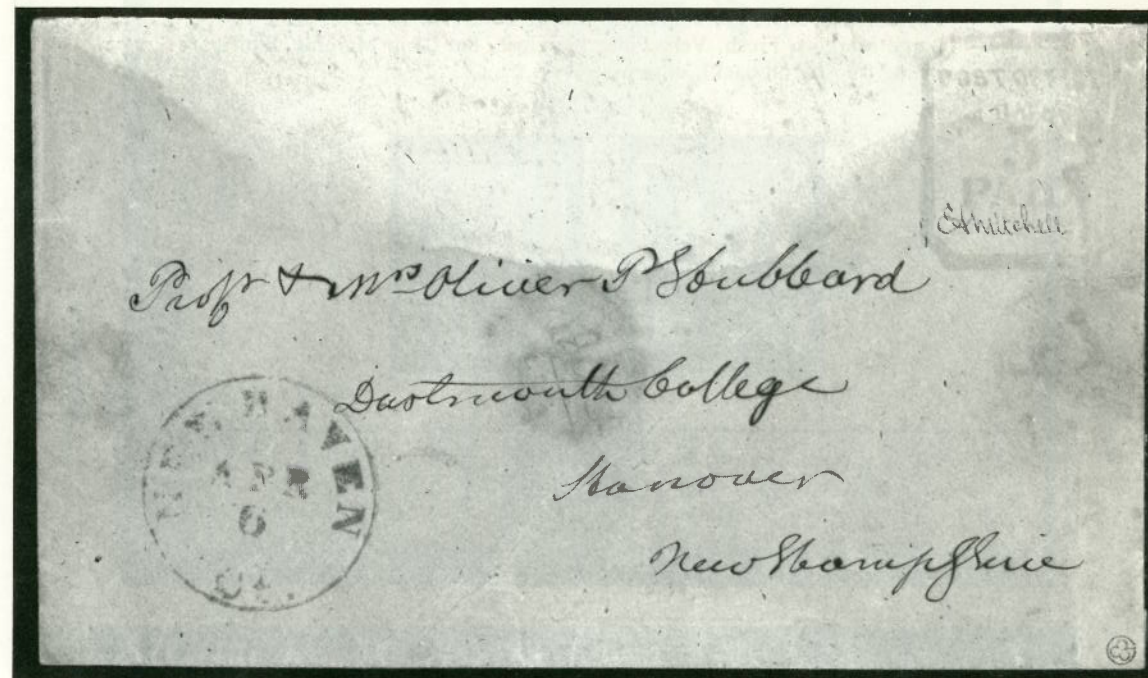 E A Mitchell
Profr & Mrs Oliver P Hubbard
Dartmouth College
Hanover
New Hampshire
NEW HAVEN
APR
6
CT.
5
PAID